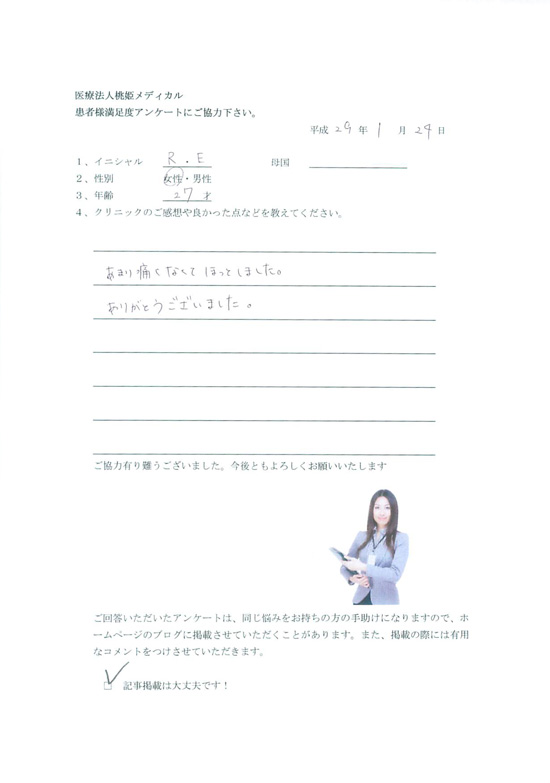 医療法人桃姫メディカル
患者様満足度アンケートにご協力下さい。
平成 29 年 1 月 24 日
1、イニシャル R.E 母国
2、性別 女性・男性
3、年齢 27才
4、クリニックのご感想や良かった点などを教えてください。
あまり痛くなくてほっとしました。
ありがとうございました。
ご協力有り難うございました。今後ともよろしくお願いいたします
ご回答いただいたアンケートは、同じ悩みをお持ちの方の手助けになりますので、ホ
ームページのブログに掲載させていただくことがあります。また、掲載の際には有用
なコメントをつけさせていただきます。
記事掲載は大丈夫です！